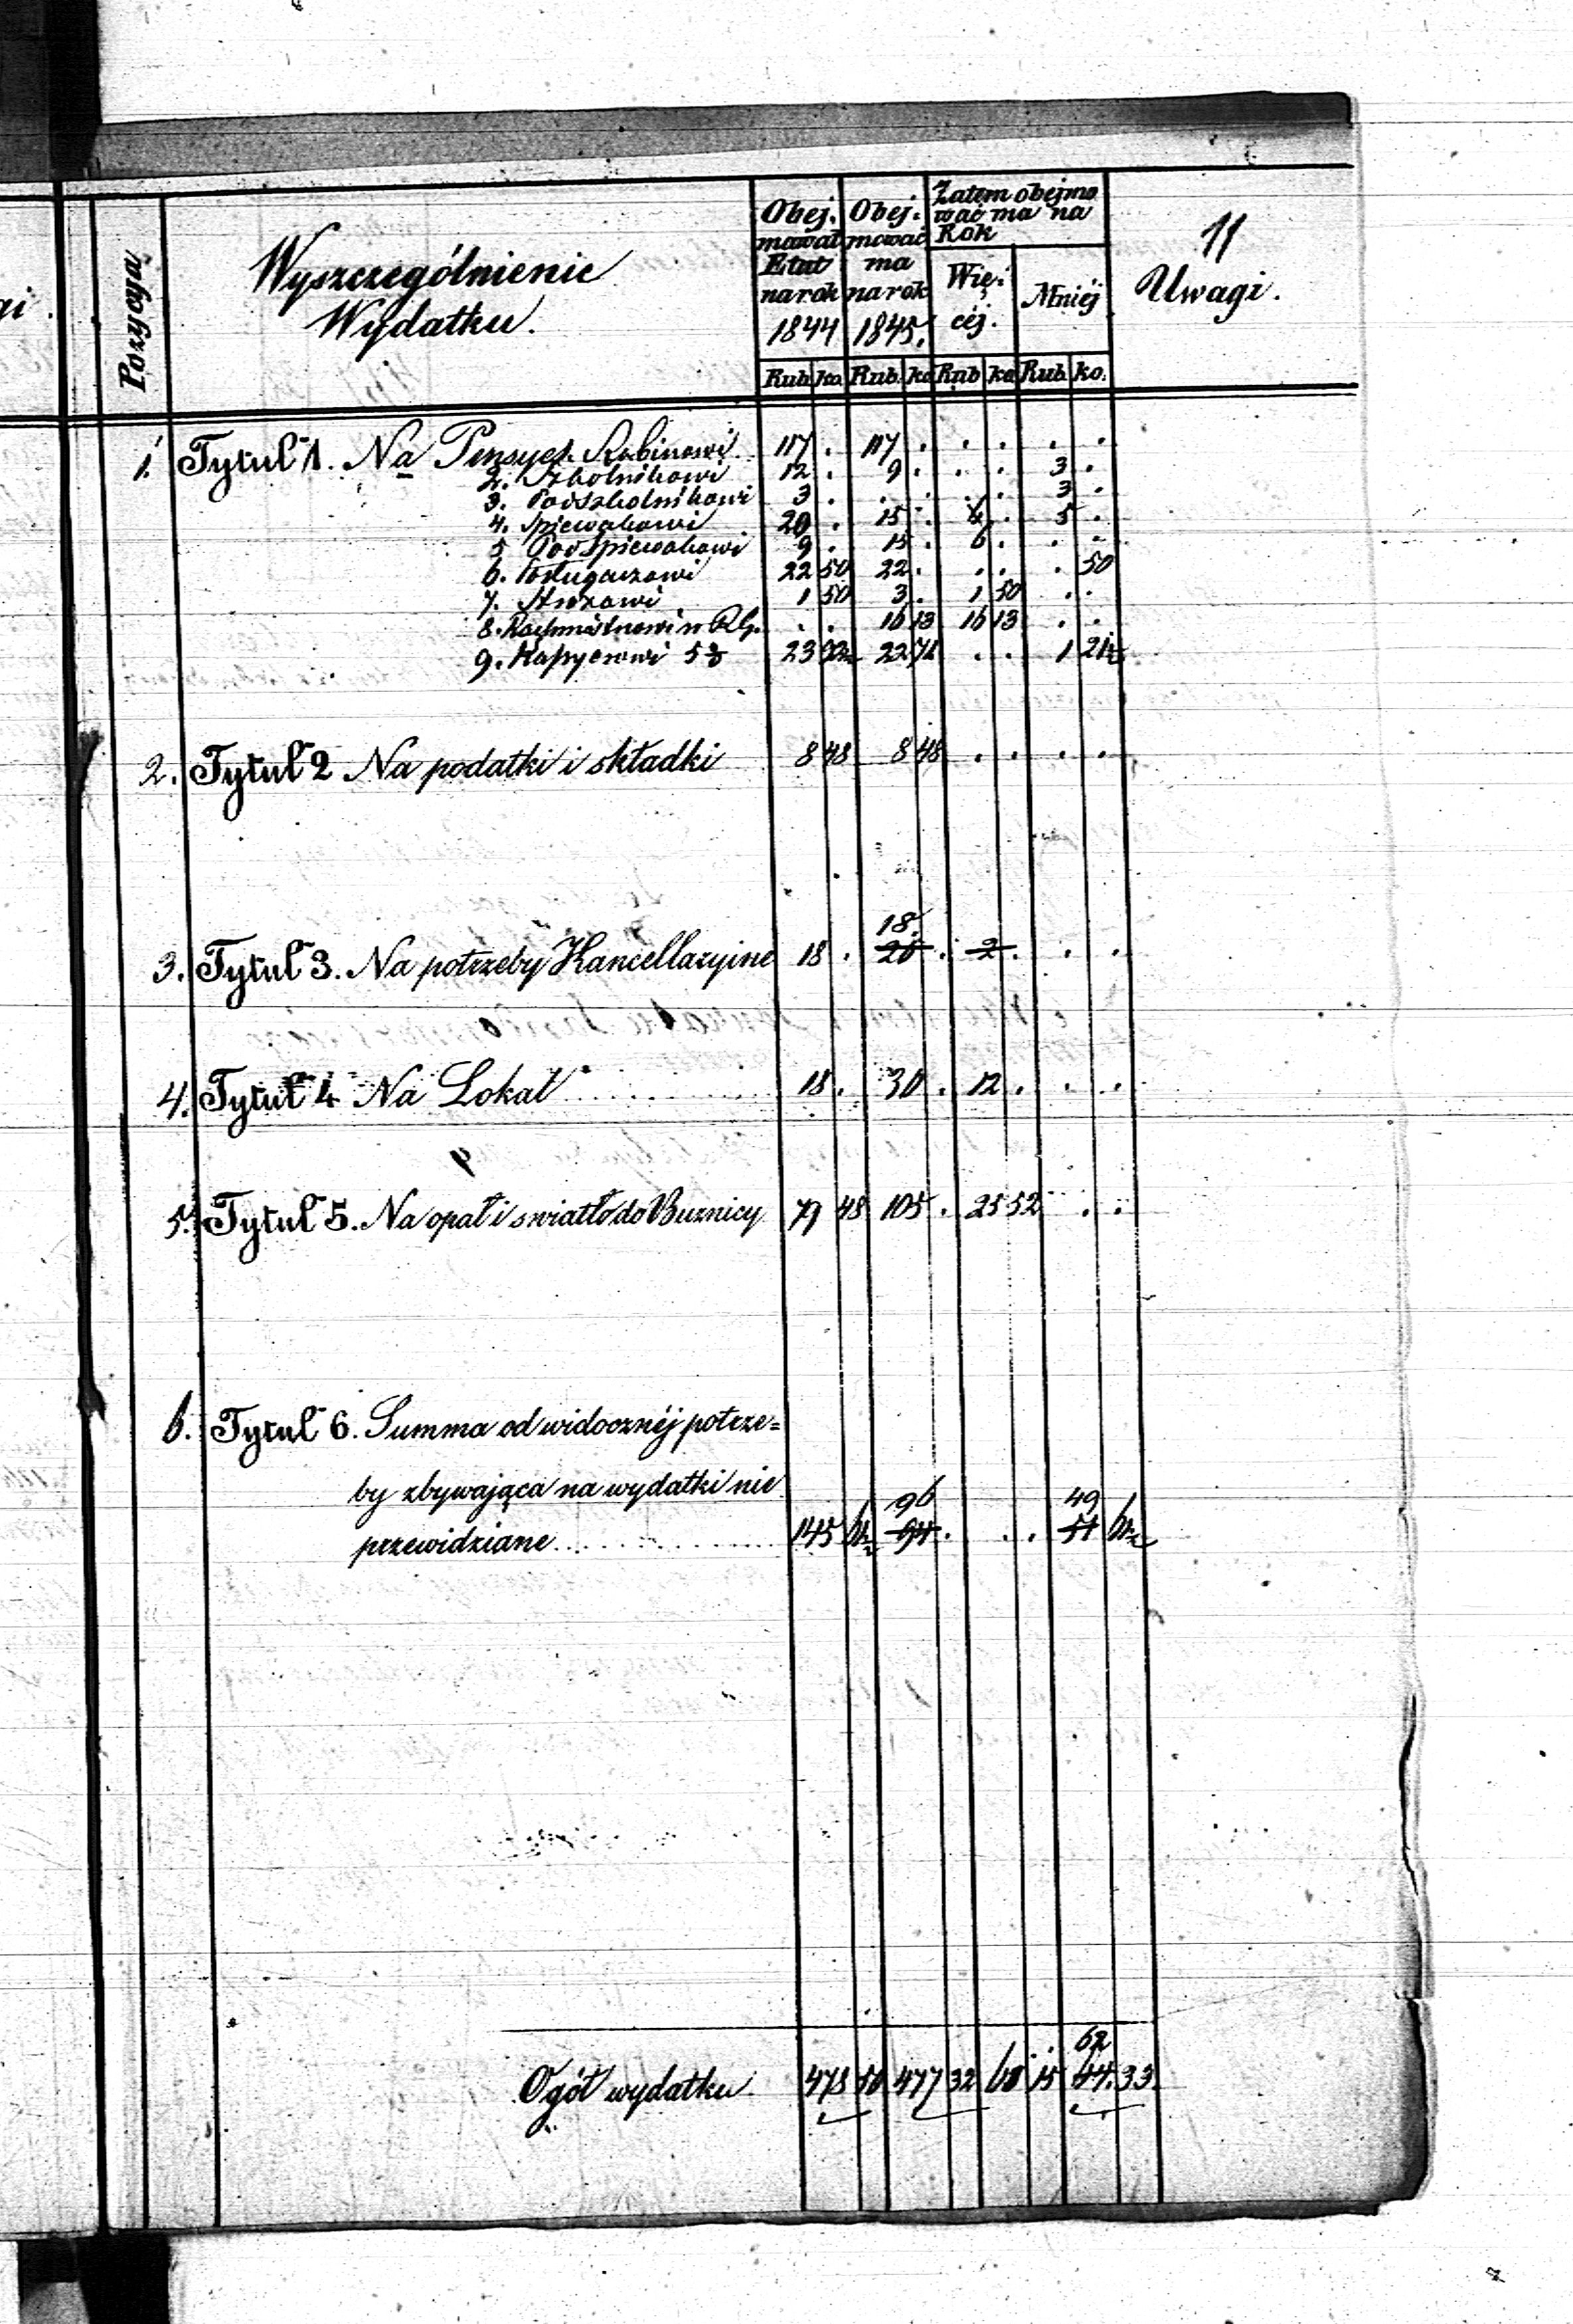 11
Pozycya
Wyszczególnienie
Wydatku.
Obej-
mował
Etat
na rok
1844
Obej-
mować
ma
na rok
1845.
Zatem obejmo
wać ma na
Rok
Wię-
céj.
Mniéj
Uwagi.
Rub. ko. Rub. ko Rub ko Rub. ko.
1. Tytuł 1. Na Pensye 1. Rabinowi 117 . 117 . . . . .
2. Szkolnikowi 12 . 9 . . . 3 .
3. Podszkolnikowi 3 . . . . . 3 .
4. Spiewakowi 20 . 15 . . 5 .
5 Podspiewakowi 9 . 15 . 6 . . .
6. Posługaczowi 22 50 22 . . . . 50
7. Strozowi 1 50 3 . 1 50 . .
8. . . 16 13 16 13 . .
9. 23 22 71 . . 1 21½
2. Tytuł 2 Na podatki i składki 8 48 8 48 . . . .
18.
3. Tytuł 3. Na potrzeby Kancellaryine 18 . 20 . 2 . . .
4. Tytuł 4 Na Lokal 18 . 30 . 12 . . .
5. Tytuł 5. Na opał i swiatło do Buznicy 79 48 105 . 25 52 . .
6. Tytuł 6. Summa od widocznéj potrze=
by zbywająca na wydatki nie
96 49
przewidziane 145 94 . . . 51
62
Ogół wydatku 478 50 477 32 68 15 64. 33.